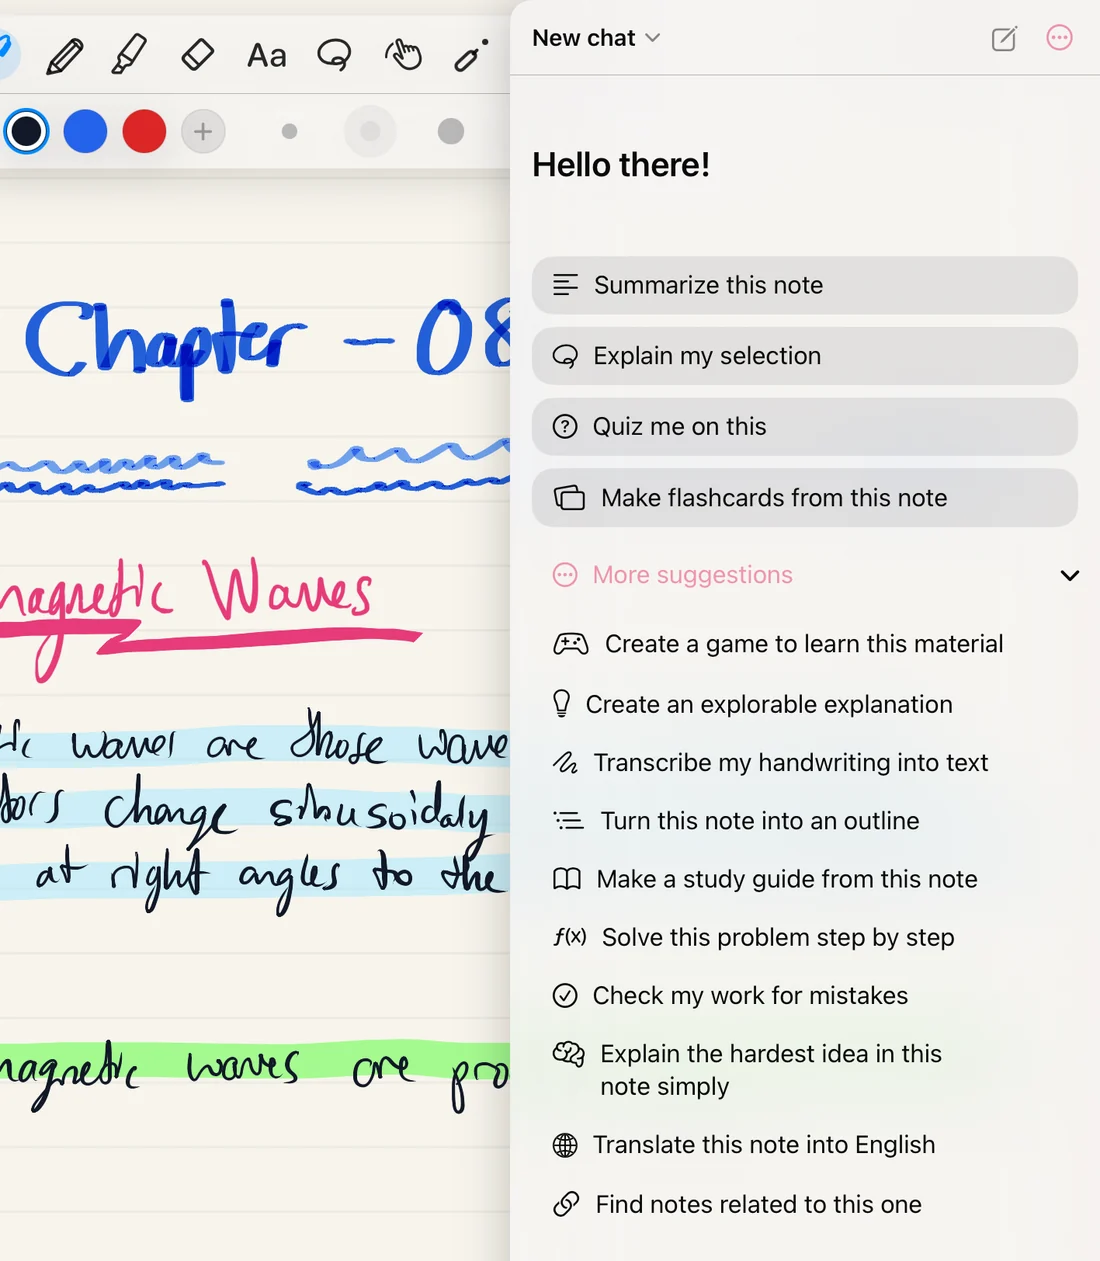 Aa
New chat
Hello there!
Summarize this note
Explain my selection
Quiz me on this
Make flashcards from this note
More suggestions
Create a game to learn this material
Create an explorable explanation
Transcribe my handwriting into text
Turn this note into an outline
Make a study guide from this note
f(x) Solve this problem step by step
Check my work for mistakes
Explain the hardest idea in this
note simply
Translate this note into English
Find notes related to this one
Chapter - 08
magnetic Waves
tic waves are those wave
tors change sinusoidaly
at right angles to the
magnetic waves are pro